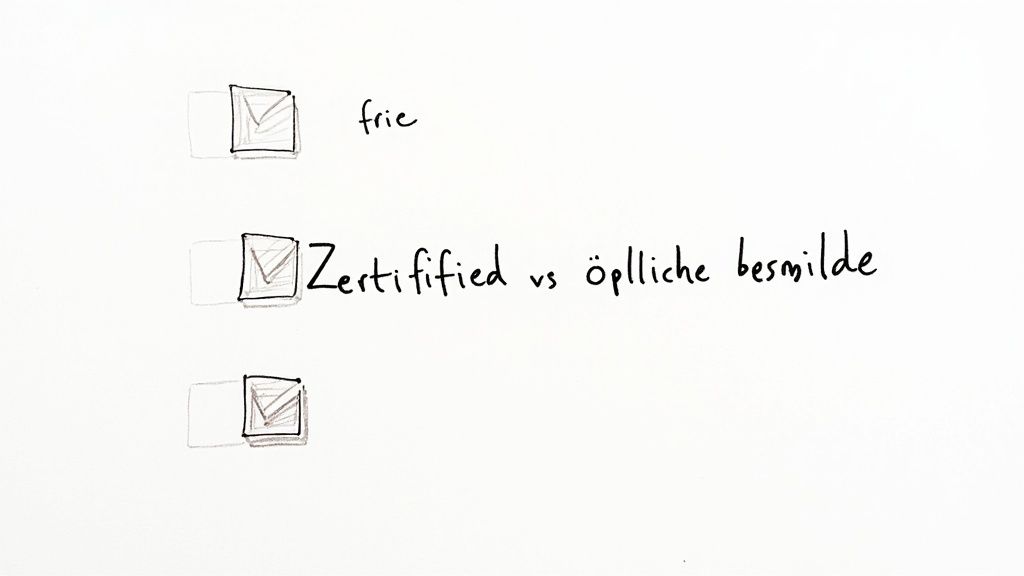 frie
Zertifified vs öplliche besmilde